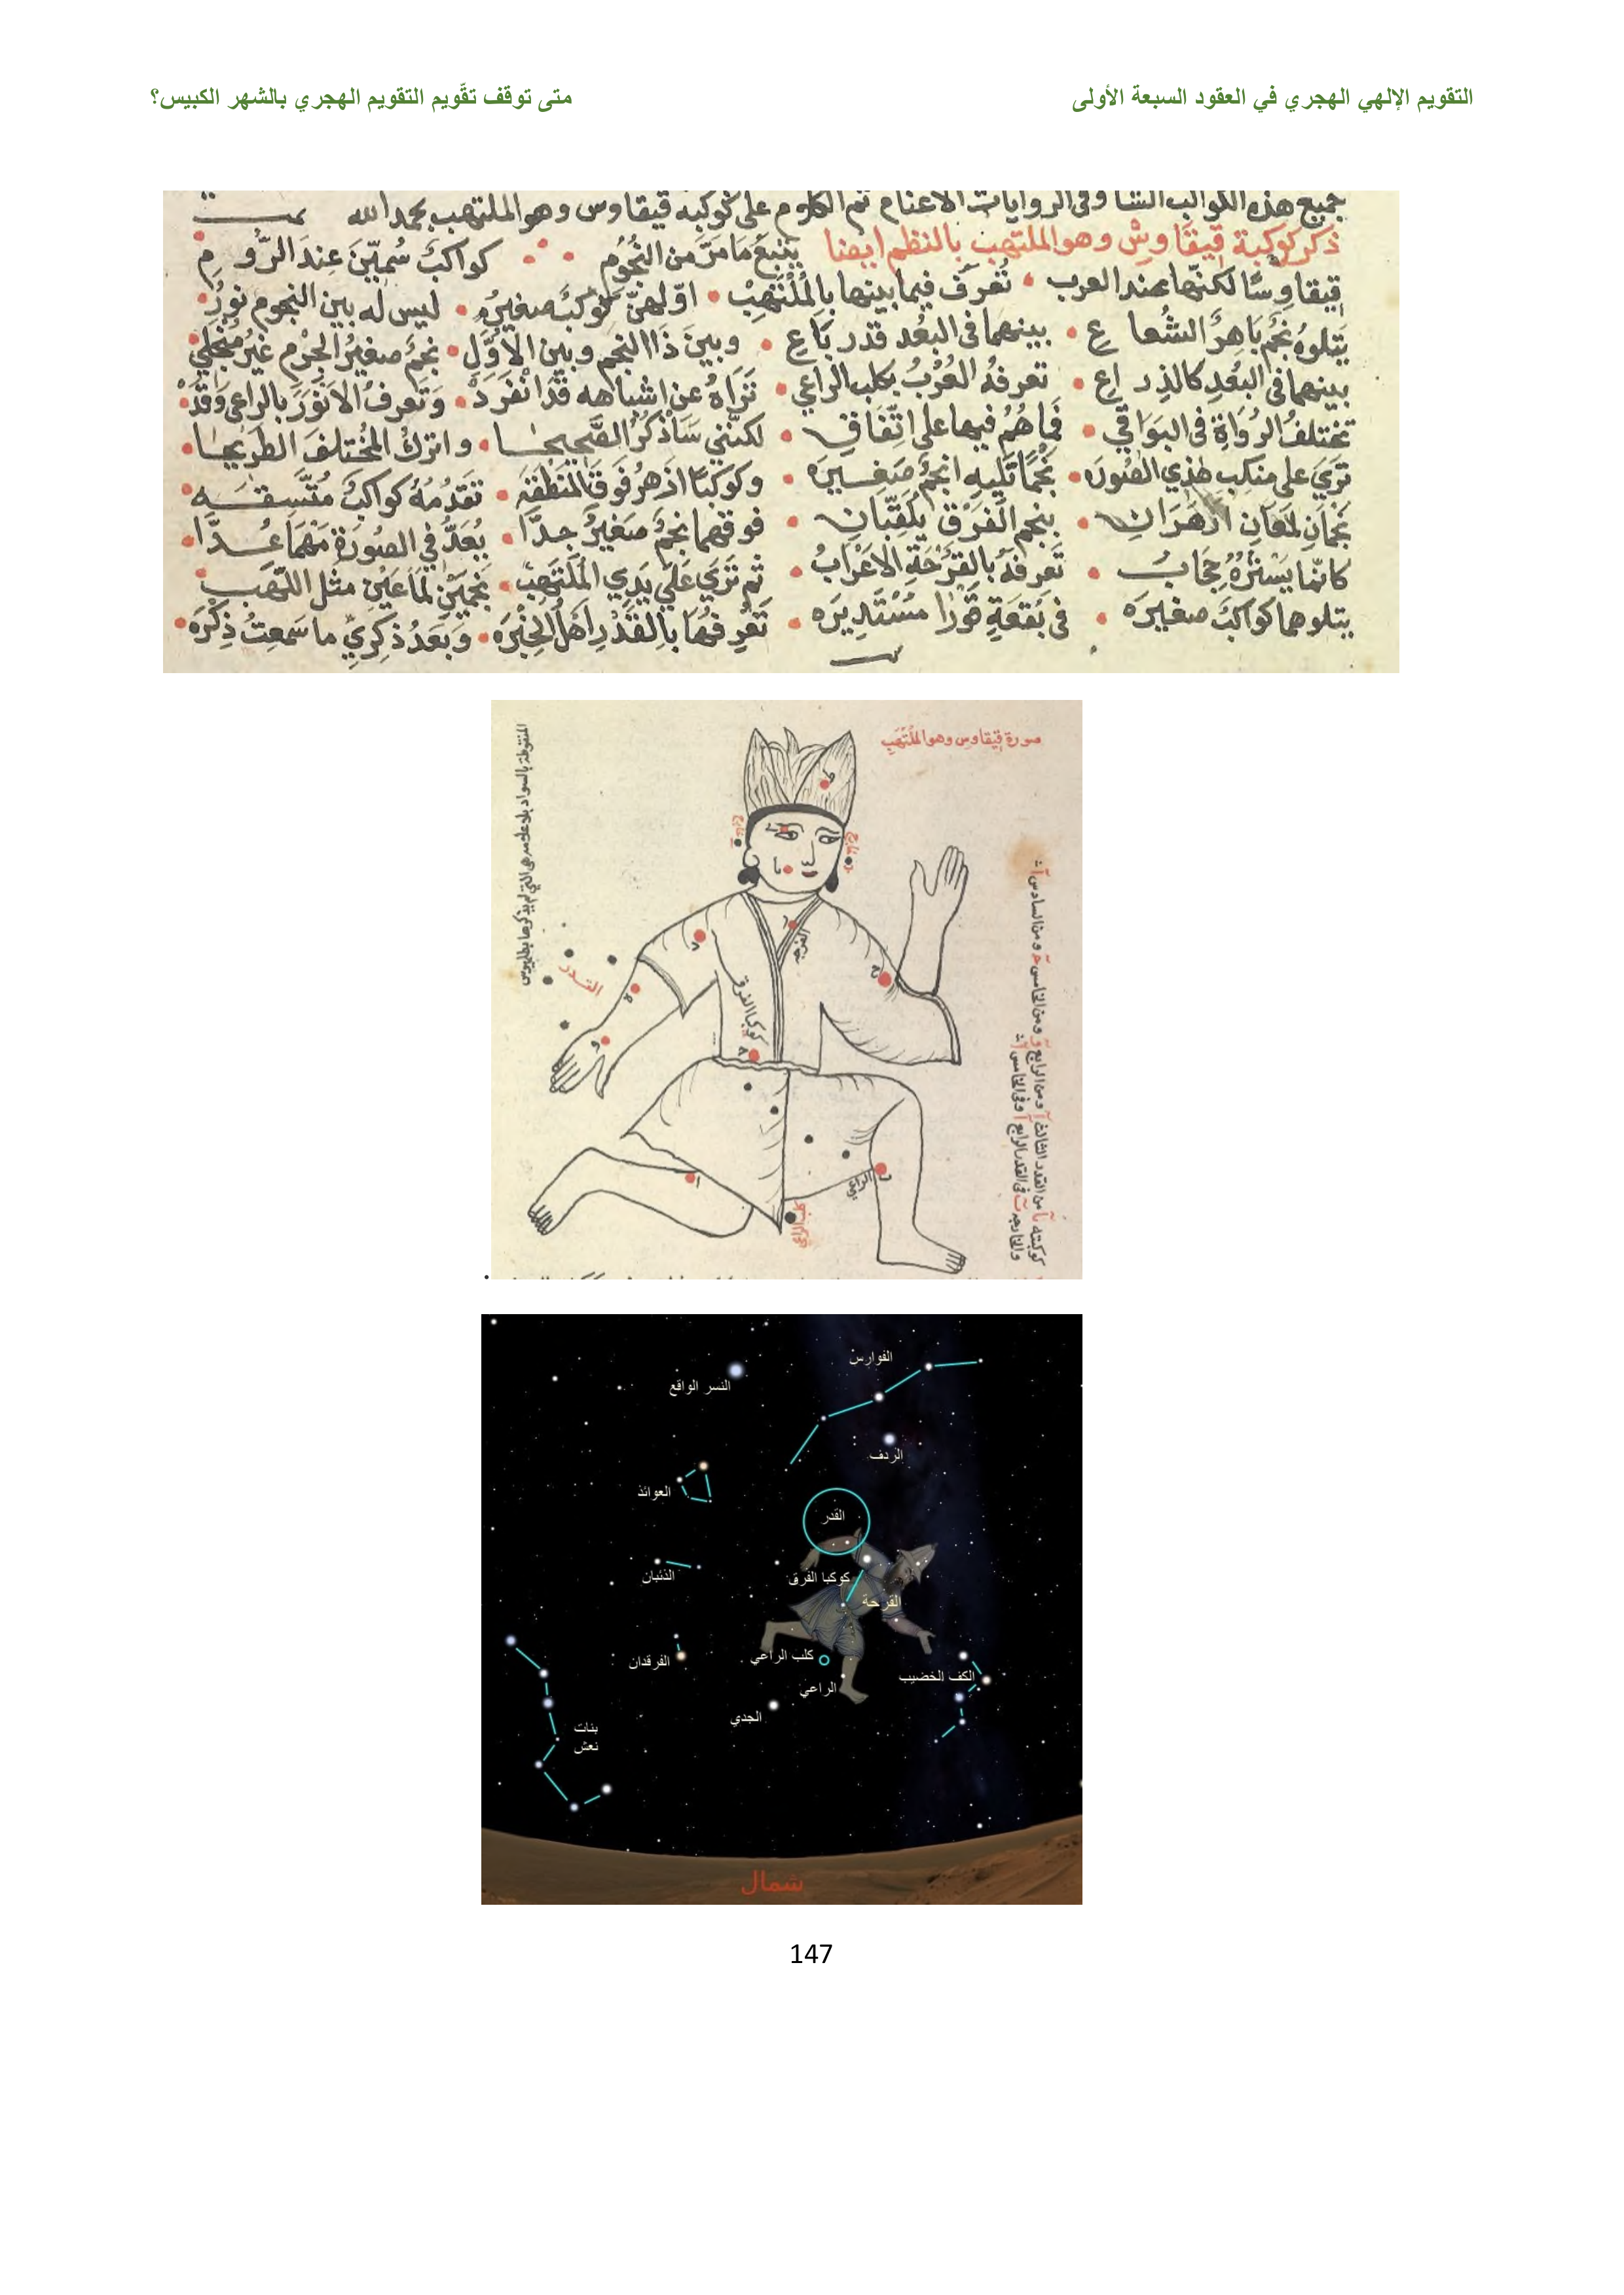 التقويم الإلهي الهجري في العقود السبعة الأولى
متى توقف تقّويم التقويم الهجري بالشهر الكبيس؟
جميع هذه الكواكب الشا وفى الروايات الاغنام تم الكلام على كوكبه قيقاوس وهو الملتهب بحمد الله
ذكر كوكبة قيقاوس وهو الملتهب بالنظم ايضا يتبع مَا مَرَّ من النُّجُوُم كواكبٌ سُمّيّنَ عِندَ الرّوُم
قيقاوسًا لكنّها عند العرب • تُعرَف فيما بينها بالمُلتَهِبْ • اوّلهنّ كوكبٌ صغيرُ • ليس له بين النجوم نورُ •
يَتلوهُ نجمٌ بَاهِرُ الشُعاع • بينهما فى البُعد قدر بَاع • وبينَ ذَا النجم وبين الاَوّلِ • نجمٌ صغيرُ الجِرْم غيرُ مُنجَلِي •
بينهما فى البُعدِ كالذِراع • تعرفهُ العُرْبُ بكلب الراعي • تَرَاهُ عن اشباهه قَد انفَرَدَ • وَتَعرفُ الاَنوَرَ بالراعى وَقَدْ •
تختلفُ الرُوَاةِ فى البَوَاقي • فَما هُمُ فيها على اتّفَاقِ • لكنّني سَاَذكُرُ الصَّحِيحَا • واترك المُختلفَ الطرِيحَا •
تَرَيَ على منكِبِ هٰذي الصُورَه • نجمًا تَلِيهِ انجمٌ صَغِيرَه • وكوكبًا ازهرُ فوقَ المِنطَقَة • تقدُمُهُ كواكبٌ مُتَّسِقَه •
نجمَانِ لمَعانِ ازهَرَانِ • بنجم الفَرقِ يُلَقَّبَانِ • فوقهما نجمٌ صَغيرٌ جدًّا • يُعَدُّ في الصُورةِ مَهْمَا عُدَّا •
كانّما يَسْتُرُهُ حِجَابُ • تَعرِفهُ بالقُرْحَةِ الاَعْرَابُ • ثم تَرَيَ عَلَي يَدِي المُلتَهِبْ • نجمَيْنِ لمَاعَيْنِ مثل اللّهَب
يتلوهما كواكبٌ صغيرَه • فى بُقعَةٍ قَوْرَا مُسْتَدِيرَه • تَعْرِفُهَا بِالقِدْرِ اَهْلُ الخِبْرَه • وَبَعدُ ذِكرِيَ ما سَمعتُ ذِكرَه •
صورة قيقاوس وهو المُلتَهِبِ
المنقوطة بالسواد بلا علامه هى التى لم يذكرها بطليوس
القدر
القرحه
كوكبا الفرق
الراعى
كلب الراعى
كوكبته يا من القدر الثالث ا ومن الرابع و ومن الخامس ح ومن السادس ا
والخارجه ب فى القدر الرابع ا وفى الخامس ا
الفوارس
النسر الواقع
الردف
العوائذ
القدر
الذئبان
كوكبا الفرق
القرحة
كلب الراعي
الفرقدان
الكف الخضيب
الراعي
الجدي
بنات
نعش
شمال
147